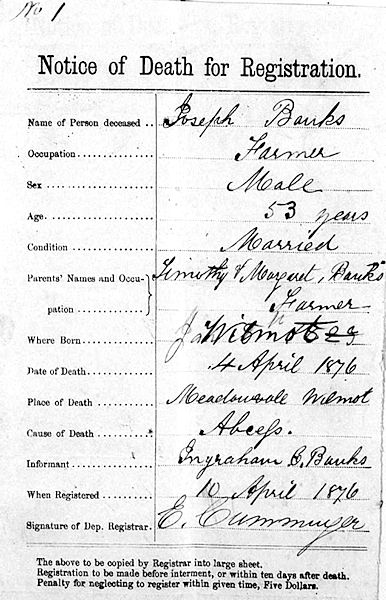 No 1
Notice of Death for Registration.
Name of Person deceased .. Joseph Banks
Occupation Farmer
Sex Male
Age 53 years
Condition Married
Parents' Names and Occu- Timothy & Margaret, Banks
pation Farmer
Where Born Wilmot
Date of Death 4 April 1876
Place of Death Meadowvale Wilmot
Cause of Death Abcess.
Informant Ingraham B. Banks
When Registered 10 April 1876
Signature of Dep. Registrar. E. Cumminger
The above to be copied by Registrar into large sheet.
Registration to be made before interment, or within ten days after death.
Penalty for neglecting to register within given time, Five Dollars.